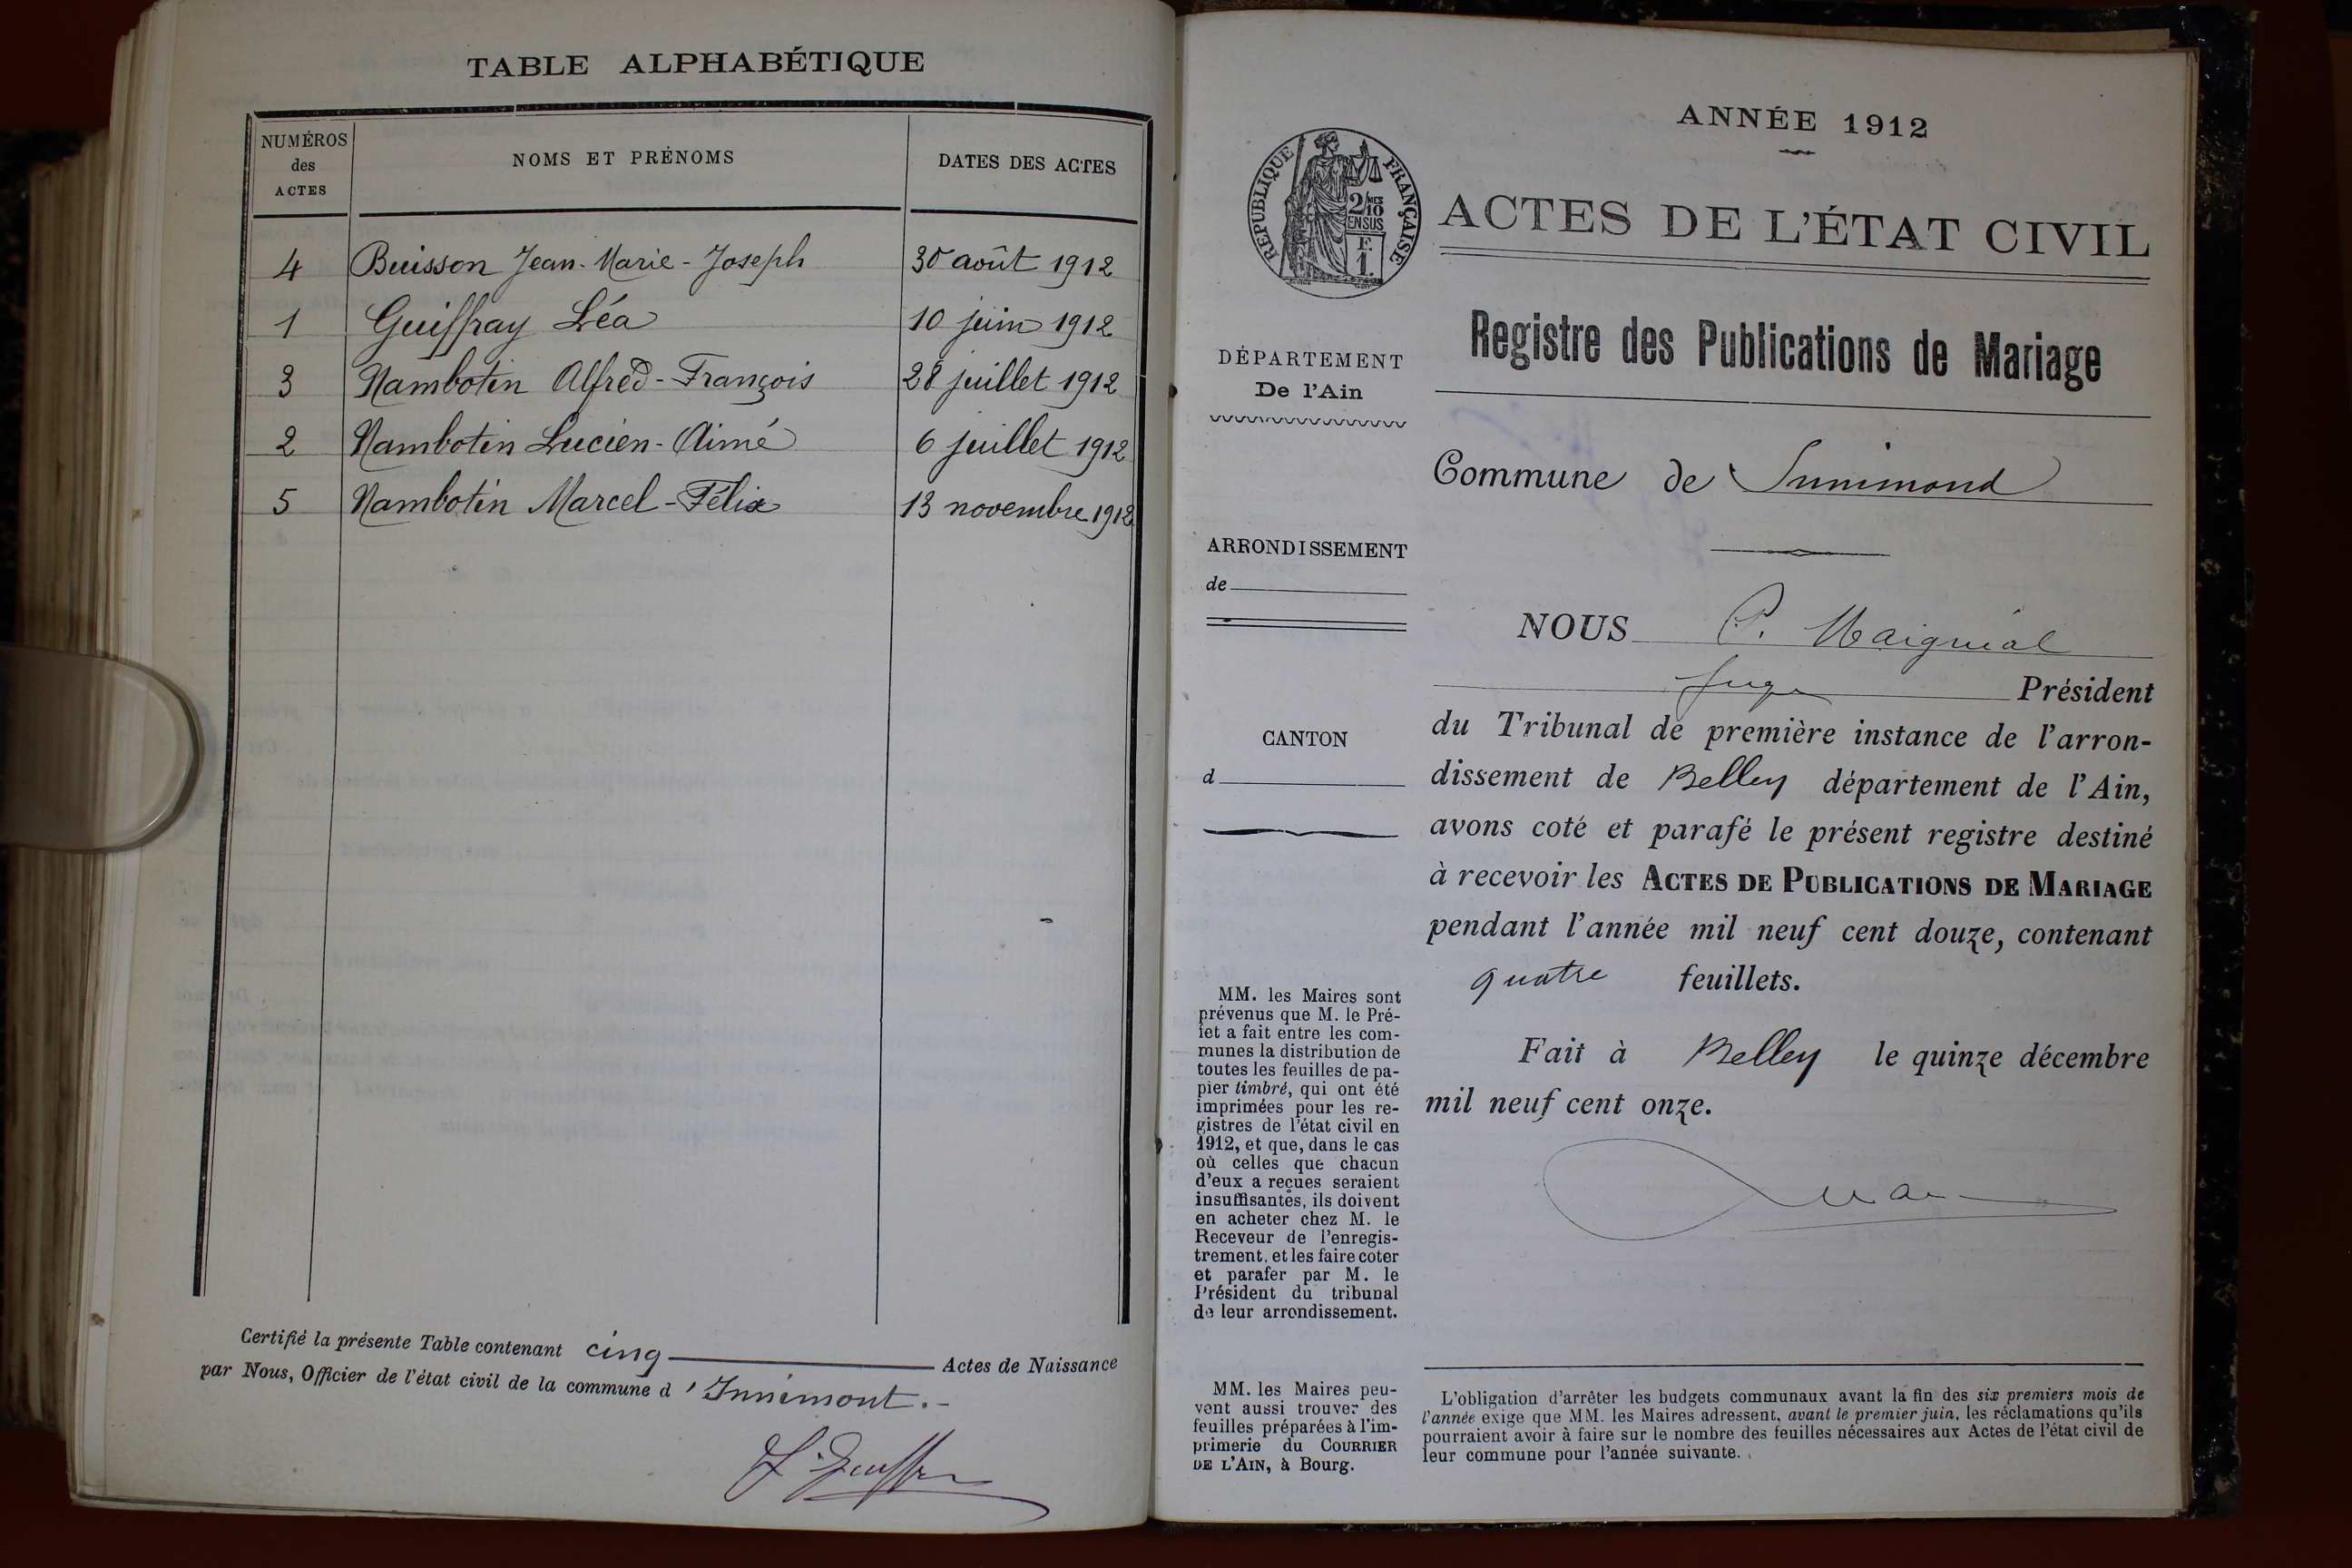 TABLE ALPHABÉTIQUE
NUMÉROS
des
ACTES
NOMS ET PRÉNOMS
DATES DES ACTES
4 Buisson Jean-Marie-Joseph 30 août 1912
1 Guiffray Léa 10 juin 1912
3 Nambotin Alfred-François 28 juillet 1912
2 Nambotin Lucien-Aimé 6 juillet 1912
5 Nambotin Marcel-Félix 13 novembre 1912
Certifié la présente Table contenant cinq Actes de Naissance
par Nous, Officier de l'état civil de la commune d'Innimont.-
ANNÉE 1912
RÉPUBLIQUE FRANÇAISE
2/10 MES
EN SUS
F.
1.
ACTES DE L'ÉTAT CIVIL
Registre des Publications de Mariage
DÉPARTEMENT
De l'Ain
Commune de Innimond
ARRONDISSEMENT
de
NOUS P. Maignial
Juge Président
CANTON
d
du Tribunal de première instance de l'arron-
dissement de Belley département de l'Ain,
avons coté et parafé le présent registre destiné
à recevoir les ACTES DE PUBLICATIONS DE MARIAGE
pendant l'année mil neuf cent douze, contenant
quatre feuillets.
Fait à Belley le quinze décembre
mil neuf cent onze.
MM. les Maires sont
prévenus que M. le Pré-
fet a fait entre les com-
munes la distribution de
toutes les feuilles de pa-
pier timbré, qui ont été
imprimées pour les re-
gistres de l'état civil en
1912, et que, dans le cas
où celles que chacun
d'eux a reçues seraient
insuffisantes, ils doivent
en acheter chez M. le
Receveur de l'enregis-
trement, et les faire coter
et parafer par M. le
Président du tribunal
de leur arrondissement.
MM. les Maires peu-
vent aussi trouver des
feuilles préparées à l'im-
primerie du COURRIER
DE L'AIN, à Bourg.
L'obligation d'arrêter les budgets communaux avant la fin des six premiers mois de
l'année exige que MM. les Maires adressent, avant le premier juin, les réclamations qu'ils
pourraient avoir à faire sur le nombre des feuilles nécessaires aux Actes de l'état civil de
leur commune pour l'année suivante.